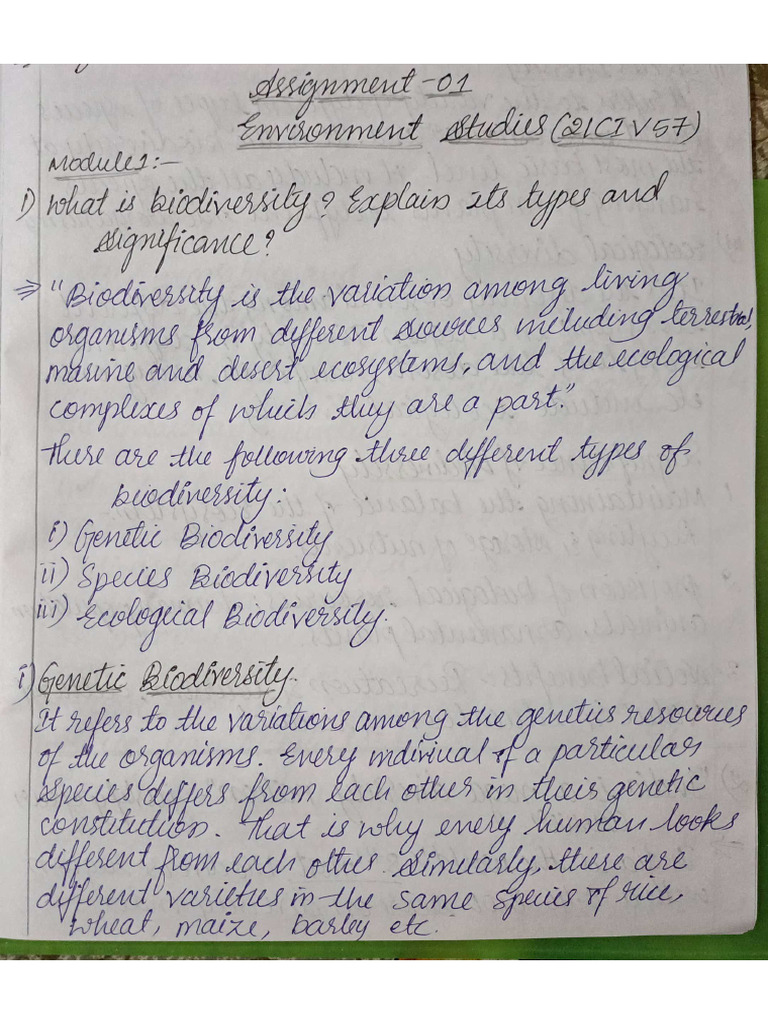 Assignment-01
Environment Studies (21CIV57)
Module1:-
1) What is biodiversity? Explain its types and
significance?
⇒ "Biodiversity is the variation among living
organisms from different sources including terrestrial,
marine and desert ecosystems, and the ecological
complexes of which they are a part."
There are the following three different types of
biodiversity:
i) Genetic Biodiversity
ii) Species Biodiversity
iii) Ecological Biodiversity.
i) Genetic Biodiversity.
It refers to the variations among the genetics resources
of the organisms. Every indiviual of a particular
species differs from each other in their genetic
constitution. That is why every human looks
different from each other. Similarly, there are
different varieties in the same species of rice,
wheat, maize, barley etc.